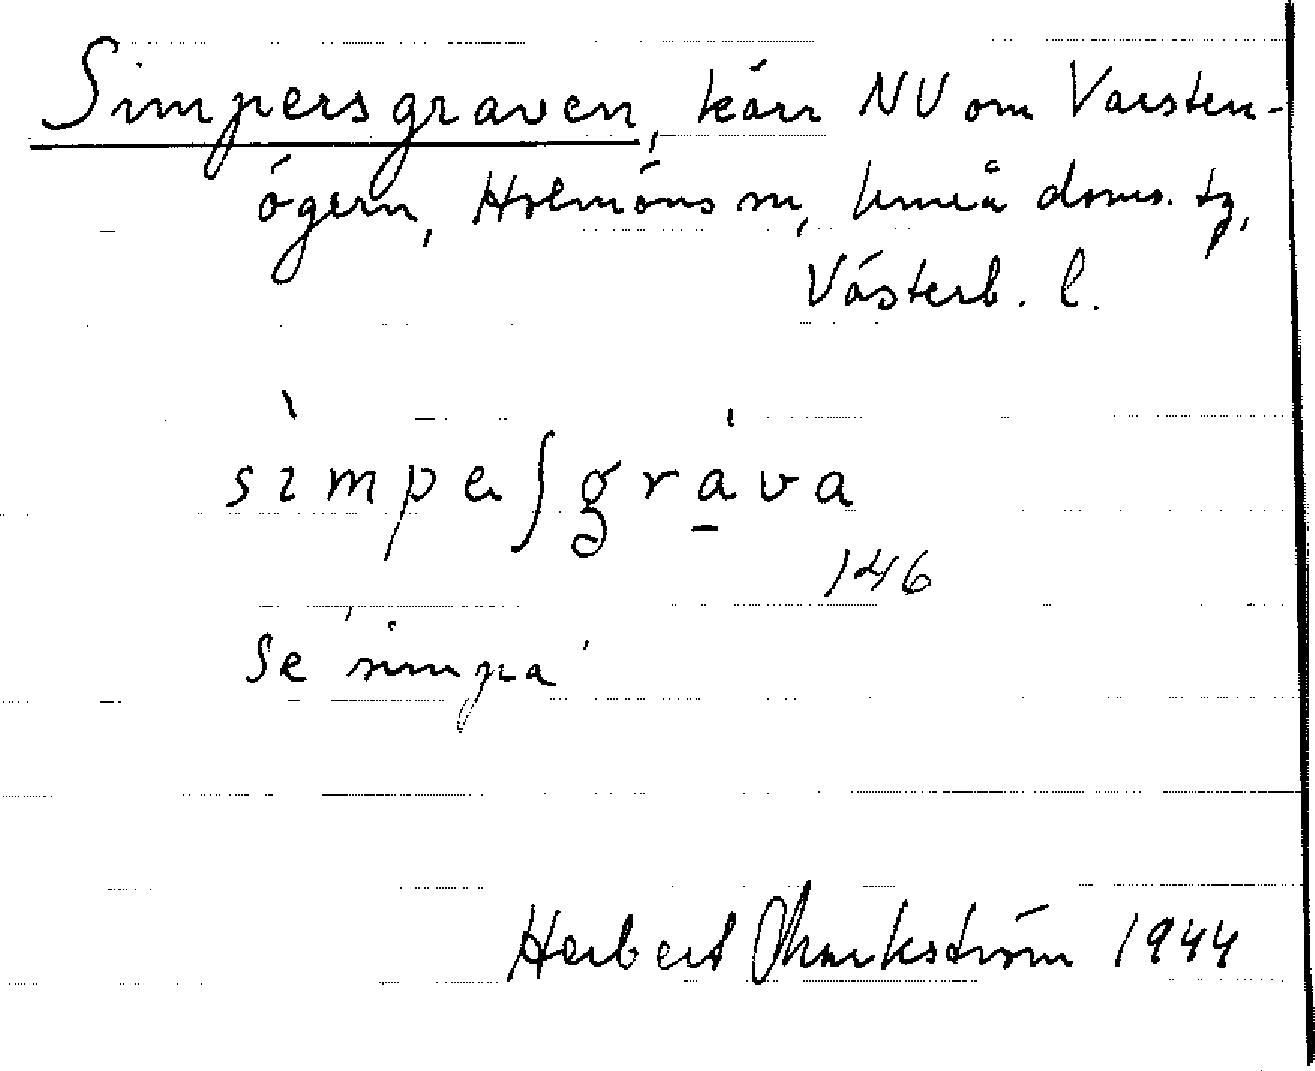 Simpersgraven, kärr NV om Varsten-
ögern, Holmöns sn, Umeå doms. tg,
Västerb. l.
sìmpeʃgráva
146
Se 'simpa'
Herbert Markström 1944